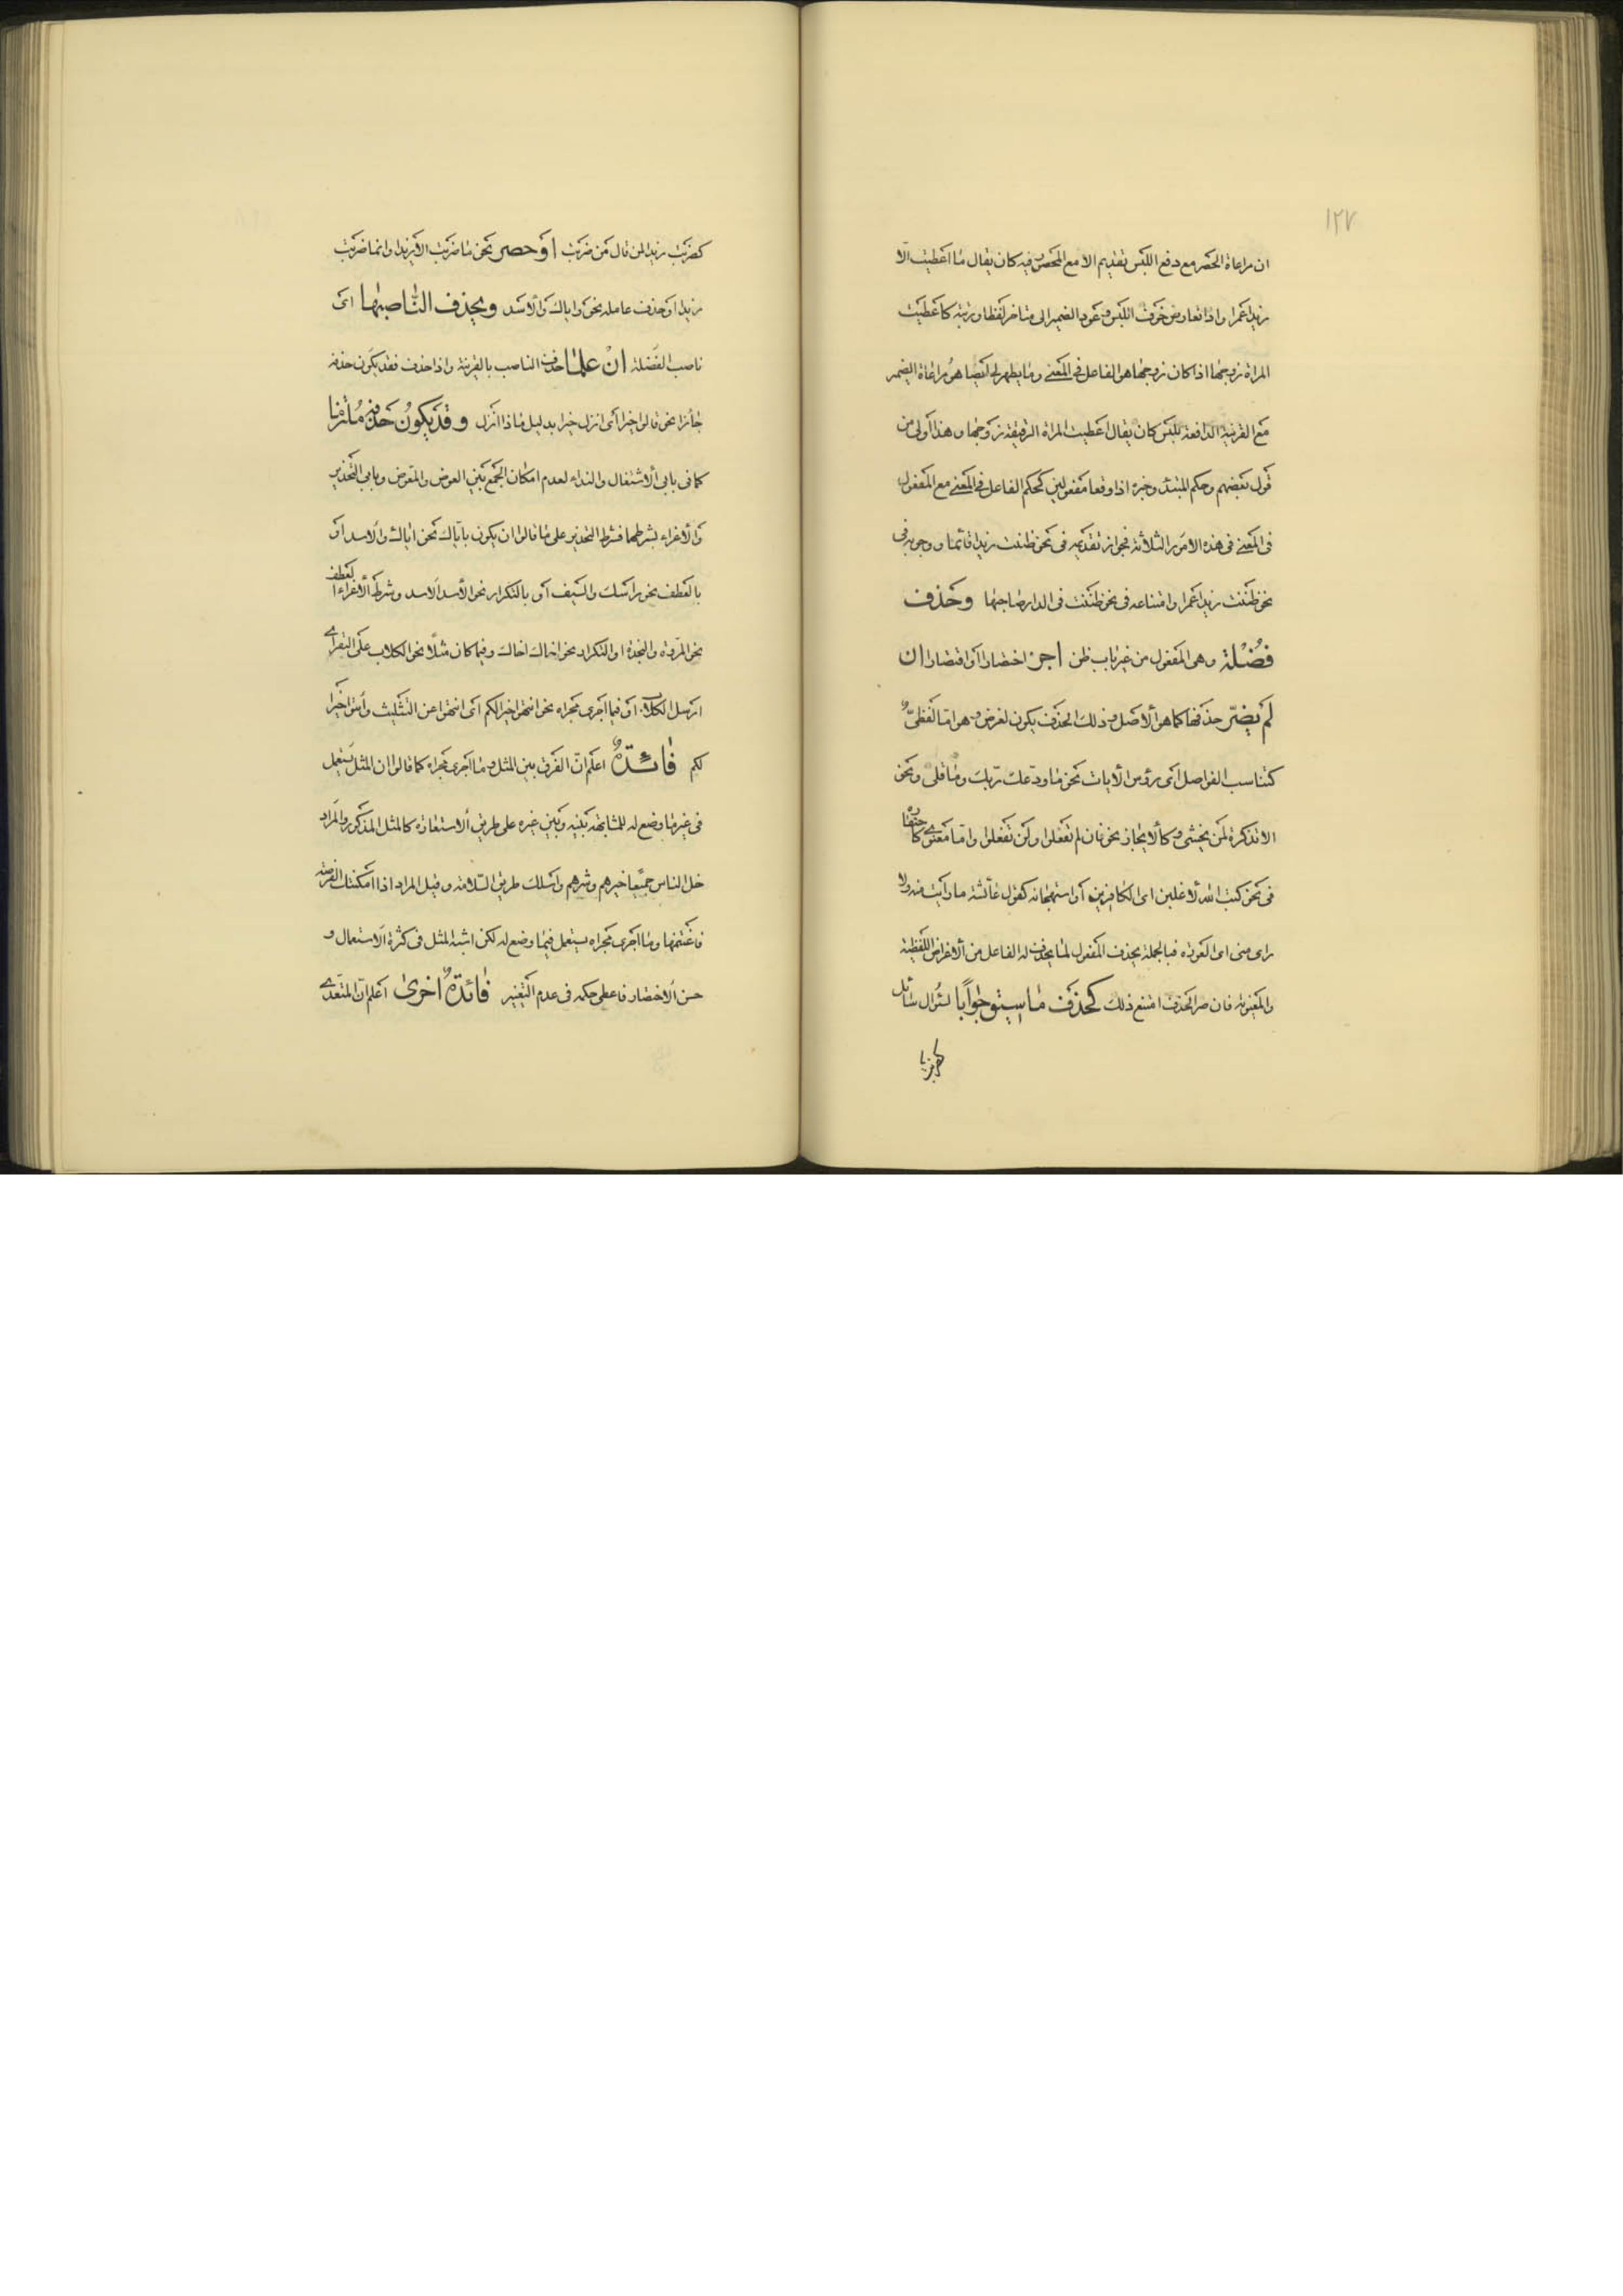 ١٢٧
ان مراعاة الحصر مع دفع اللبس بتقديم الا مع المحصور فيه كان يقال ما اعطيت الّا
زيدا عمرا واذا تعارض خوف اللبس وعود الضمير الى متاخر لفظا ورتبة كاعطيت
المراة زوجها اذا كان زوجها هو الفاعل في المعنى وما يظهر لي ايضا هو مراعاة الضمير
مع القرينة الدافعة للبس كان يقال اعطيت المراة الرقيقة زوجها وهذا اولى من
قول بعضهم وحكم المبتدا وخبره اذا وقعا مفعولين كحكم الفاعل في المعنى مع المفعول
في المعنى في هذه الامور الثلاثة فجواز تقديمه في نحو ظننت زيدا قائما ووجوبه في
نحو ظننت زيدا عمرا وامتناعه في نحو ظننت في الدار صاحبها وحذف
فضلة وهى المفعول من غير باب ظن اجز اختصارا او اقتصارا ان
لم يضرّ حذفها كما هو الاصل وذلك الحذف يكون لغرض وهو اما لفظىّ
كتناسب الفواصل اى رؤس الايات نحو ما ودّعك ربّك وما قلى ونحو
الا تذكرة لمن يخشى وكالايجاز نحو فان لم تفعلوا ولن تفعلوا وامّا معنوى كاحتقاره
في نحو كتب الله لاغلبن اى الكافرين او استهجانه كقول عائشة ما رايت منه ولا
راى منى اى العورة فبالجملة يحذف المفعول لما يحذف له الفاعل من الاغراض اللفظية
والمعنوية فان ضر الحذف امتنع ذلك كحذف ما سيتو جوابا لسؤال سائل
كضربت زيدا
كضربت زيدا لمن قال من ضربت او حصر نحو ما ضربت الا زيدا وانما ضربت
زيدا او حذف عامله نحو واياك والاسد ويحذف النّاصبها اى
ناصب الفضلة ان علما حذف الناصب بالقرينة واذا حذف فقد يكون حذفه
جائزا نحو قالوا خيرا اى انزل خيرا بدليل ماذا انزل وقد يكون حذفه ملتزما
كما فى بابى الاشتغال والنداء لعدم امكان الجمع بين العوض والمعوض وبابى التحذير
والاغراء بشرطهما فشرط التحذير على ما قالوا ان يكون باياك نحو اياك والاسد او
بالعطف نحو راسك والسيف او بالتكرار نحو الاسد الاسد وشرط الاغراء العطف
نحو المروّة والنجدة او التكرار نحو اخاك اخاك وفيما كان مثلا نحو الكلاب على البقر اى
ارسل الكلاب او فيما اجرى مجراه نحو انتهوا خيرا لكم اى انتهوا عن التثليث وأتوا خيرا
لكم فائدة اعلم انّ الفرق بين المثل وما اجرى مجراه كما قالوا ان المثل يستعمل
فى غير ما وضع له للمشابهة بينه وبين غيره على طريق الاستعارة كالمثل المذكور والمراد
خل الناس جميعا خيرهم وشرهم واسلك طريق السّلامة وقيل المراد اذا امكنتك الفرصة
فاغتنمها وما اجرى مجراه يستعمل فيما وضع له لكن اشبه المثل فى كثرة الاستعمال و
حسن الاختصار فاعطى حكمه فى عدم التغيير فائدة اخرى اعلم انّ المتعدّى